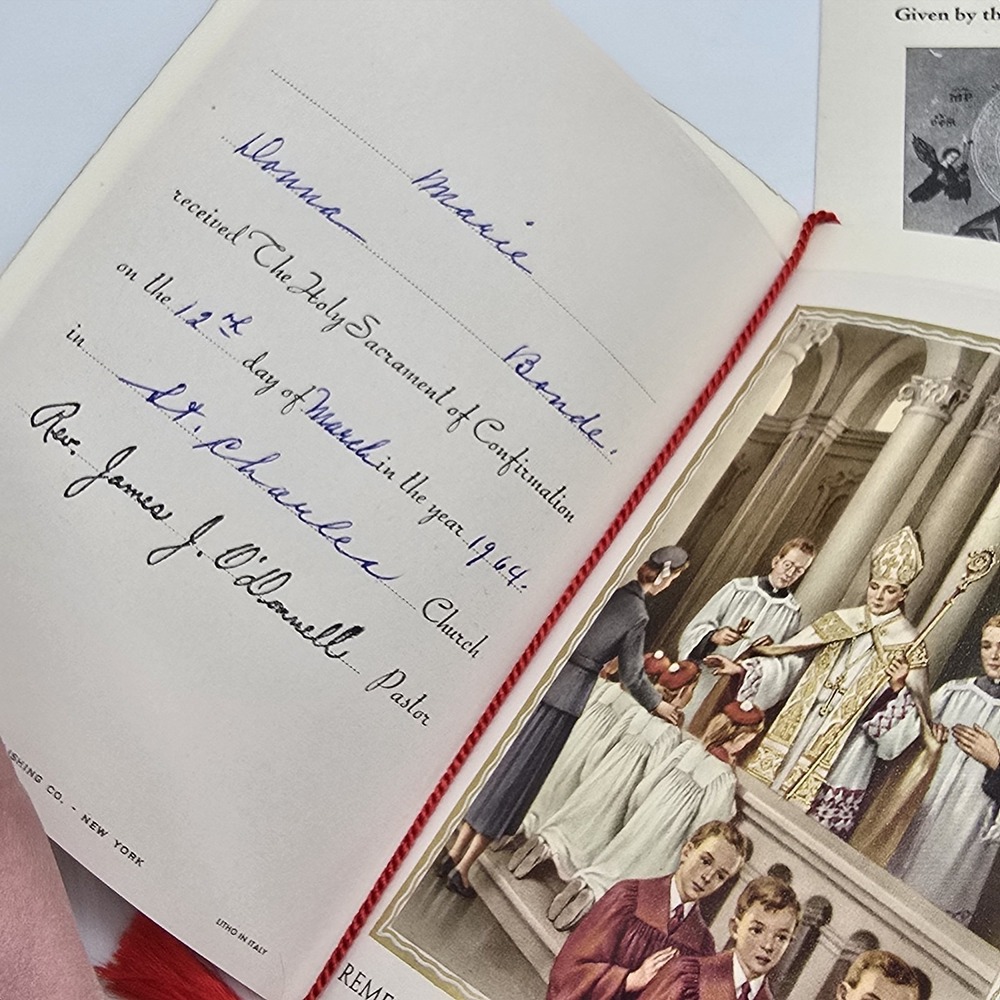 Marie
Donna Bonde.
received The Holy Sacrament of Confirmation
on the 12th day of March in the year 1964.
in St. Charles Church
Rev. James J. O'Donnell Pastor
SHING CO. - NEW YORK
LITHO IN ITALY
Given by th
MP
REME